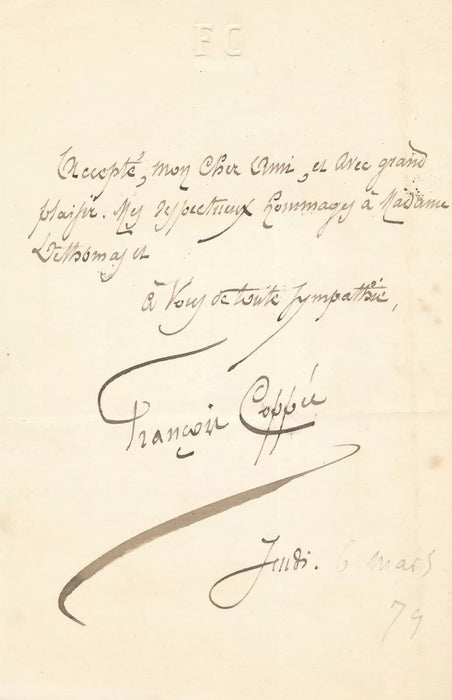 FC
Accepté, mon cher Ami, et avec grand
plaisir. Mes respectueux hommages à Madame
Dethomas et
à vous de toute sympathie,
François Coppée
Jeudi. 6 mars
79